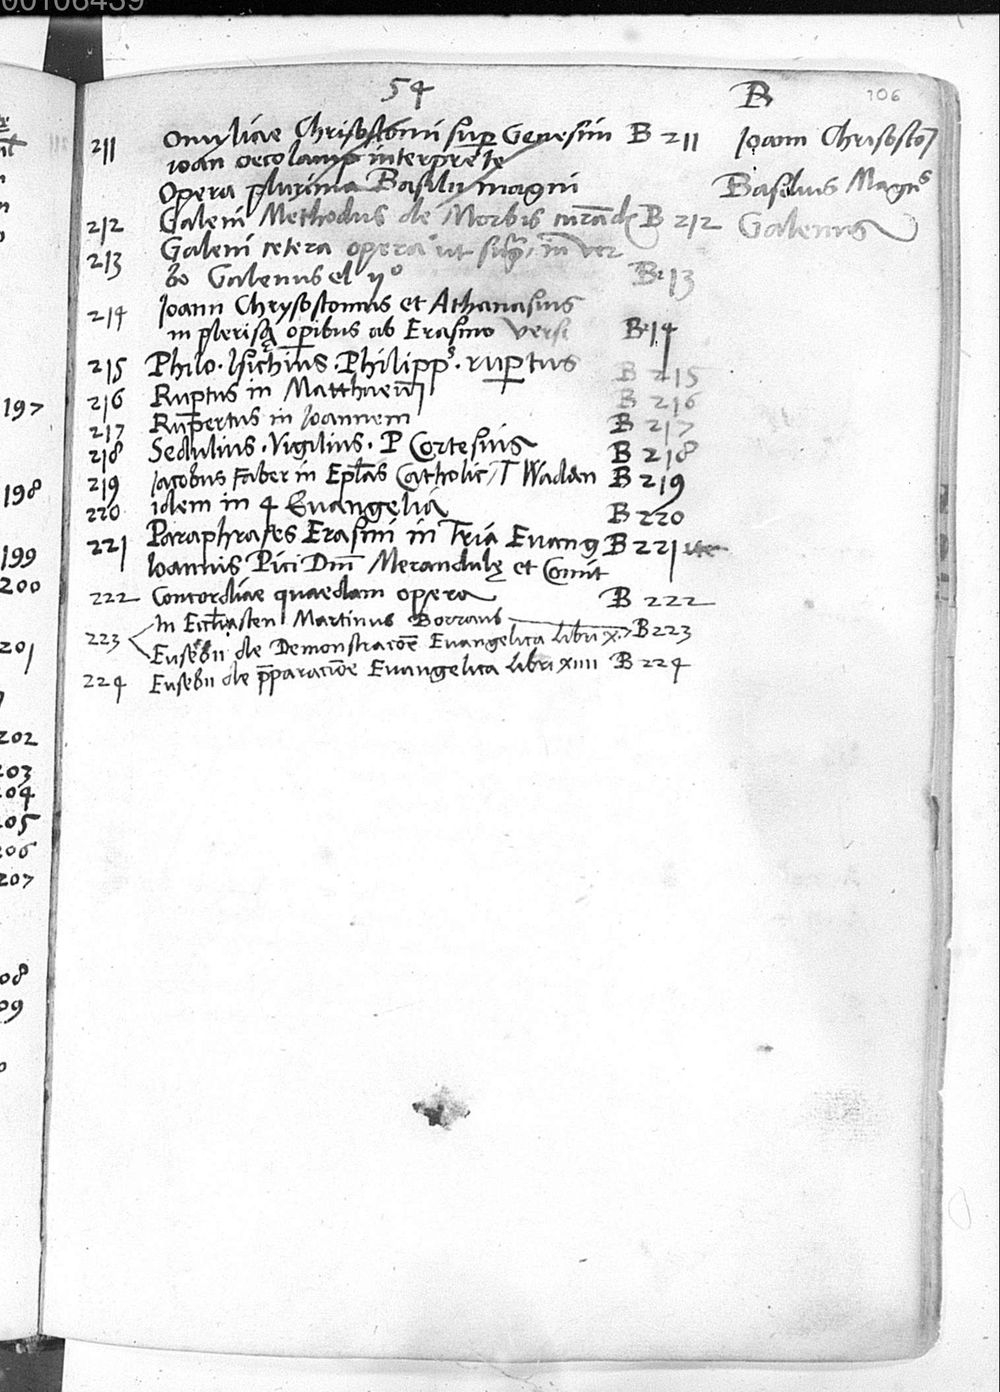 00106439
54 R 106
211 Omyliae Chrisostomi sup Genesim B 211 Joann Chrisosto
ioan oecolamp interprete
Opera plurima Basilii magni Basilius Magns
212 Galeni Methodus de Morbis curadis B 212 Galenus
213 Galeni cetera opera ut supra in ver
bo Galenus el 11º B 213
214 Joann Chrysostomus et Athanasius
in plerisq opibus ab Erasmo versi B 214
215 Philo. Isichius. Philipps. ruptus B 215
216 Ruptus in Matthaeum B 216
217 Rupertus in Joannem B 217
218 Sedulius. Vigilius. P Cortesius B 218
219 Jacobus Faber in Eplas Catholic T Waddn B 219
220 idem in 4 Evangelia B 220
221 Paraphrases Erasmi in Tria Evang B 221
Joannis Pici Dm Merandulę et Comit
222 Concordiae quaedam opera B 222
In Eccliasten Martinus Borraus
223 Eusebii de Demonstracoe Evangelica Libri x. B 223
224 Eusebii de pparacioe Evangelica Libri xiiii B 224
197
198
199
200
201
202
203
204
205
206
207
08
09